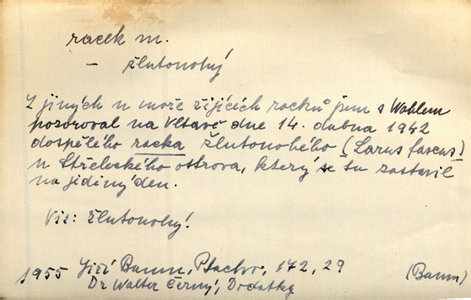 racek m.
– žlutonohý
Z jiných u moře žijících racků jsem s Wahlem
pozoroval na Vltavě dne 14. dubna 1942
dospělého racka žlutonohého (Larus fuscus)
u Střeleckého ostrova, který se tu zastavil
na jediný den.
Viz: žlutonohý!
1955 Jiří Baum, Ptactvo, 172, 29 (Baum)
Dr Walter Černý, Dodatky